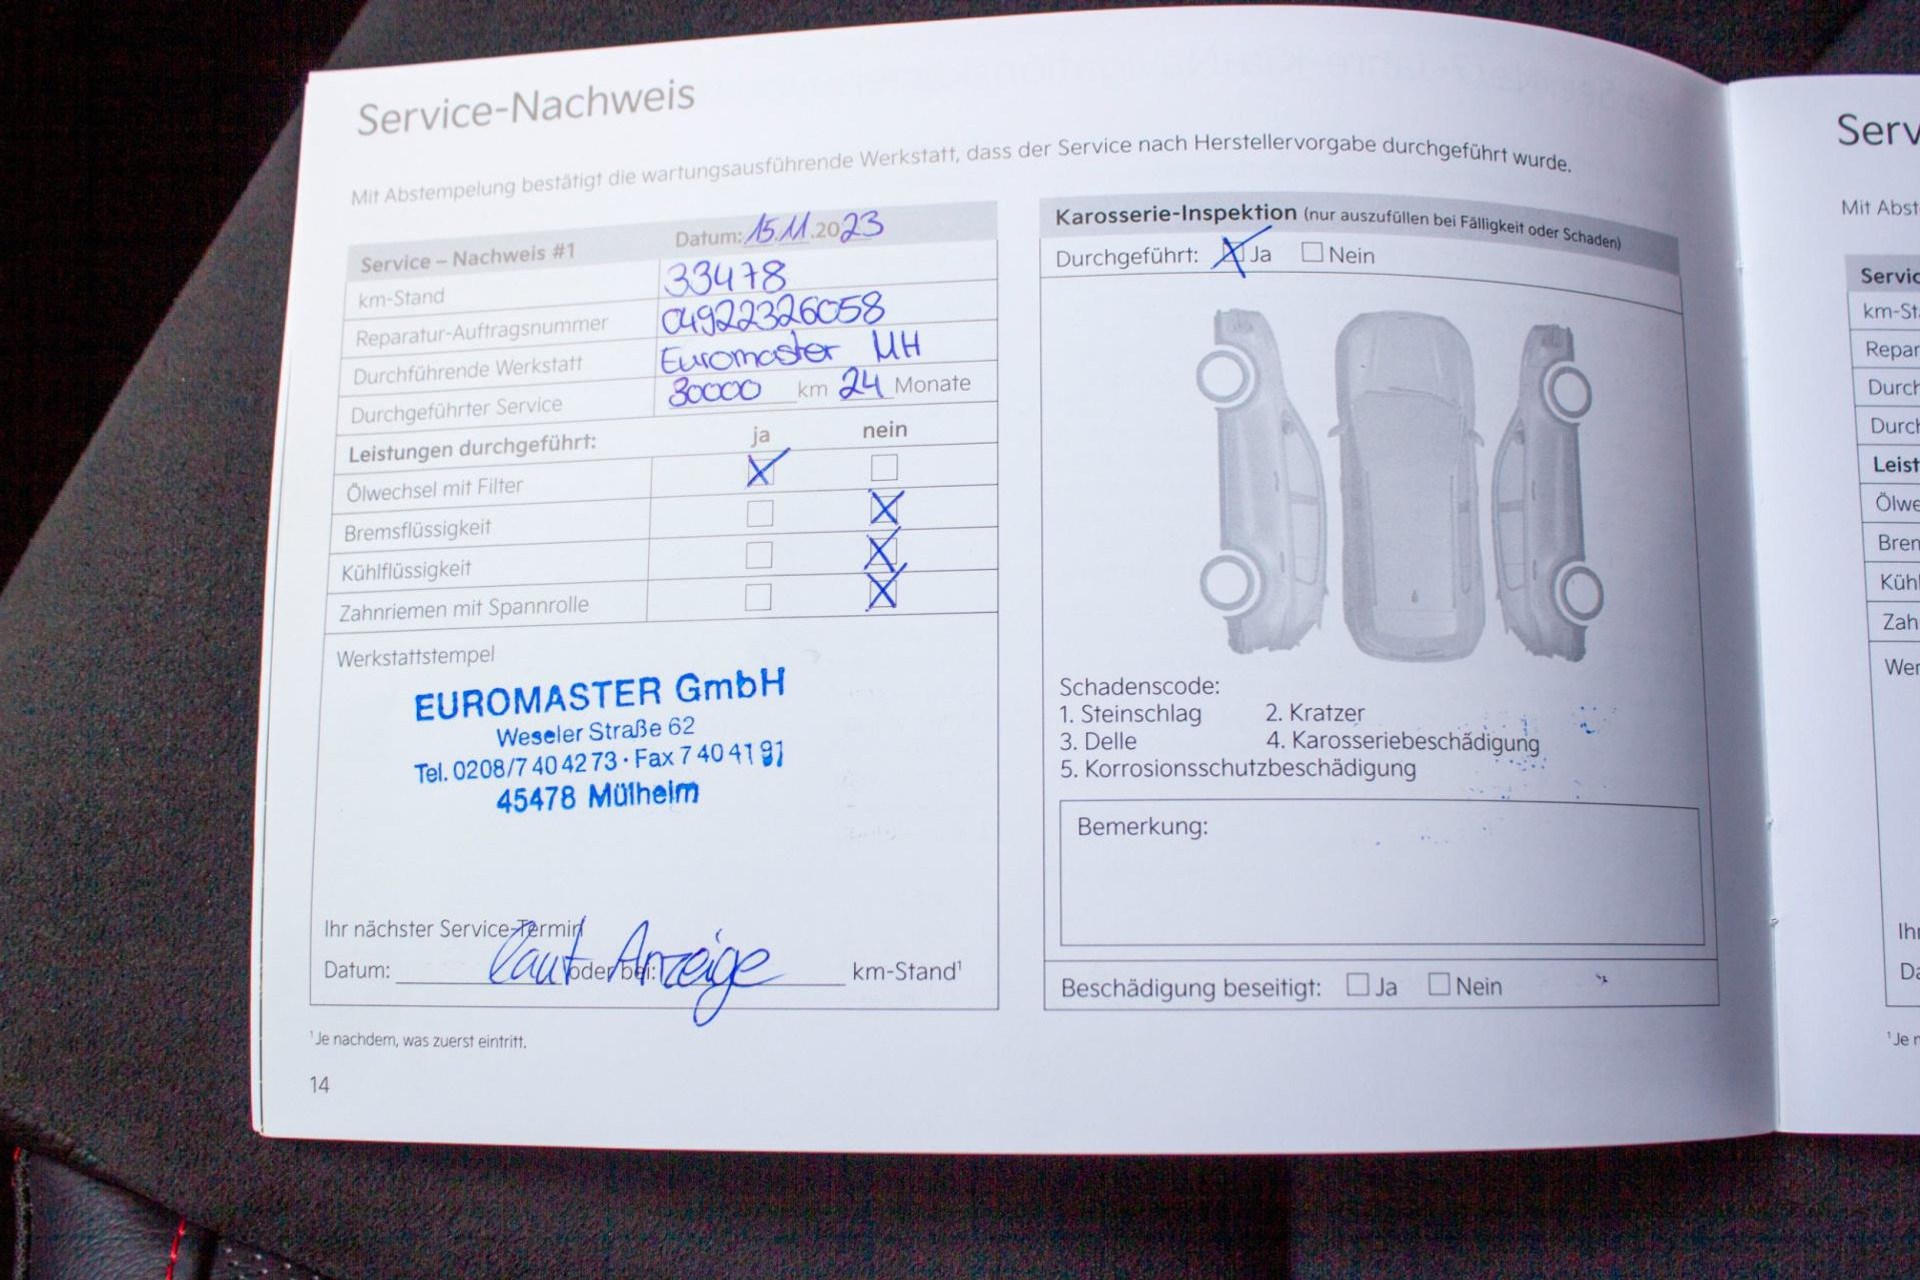 Service-Nachweis
Mit Abstempelung bestätigt die wartungsausführende Werkstatt, dass der Service nach Herstellervorgabe durchgeführt wurde.
Service – Nachweis #1 Datum: 15.11.2023
km-Stand 33478
Reparatur-Auftragsnummer 04922326058
Durchführende Werkstatt Euromaster MH
Durchgeführter Service 30000 km 24 Monate
Leistungen durchgeführt: ja nein
Ölwechsel mit Filter
Bremsflüssigkeit
Kühlflüssigkeit
Zahnriemen mit Spannrolle
Werkstattstempel
EUROMASTER GmbH
Weseler Straße 62
Tel. 0208/7 40 42 73 · Fax 7 40 41 91
45478 Mülheim
Ihr nächster Service-Termin
Datum: laut oder bei: Anzeige km-Stand¹
¹ Je nachdem, was zuerst eintritt.
14
Karosserie-Inspektion (nur auszufüllen bei Fälligkeit oder Schaden)
Durchgeführt: Ja Nein
Schadenscode:
1. Steinschlag 2. Kratzer
3. Delle 4. Karosseriebeschädigung
5. Korrosionsschutzbeschädigung
Bemerkung:
Beschädigung beseitigt: Ja Nein
Serv
Mit Abst
Servic
km-St
Repar
Durch
Durch
Leist
Ölwe
Brem
Kühl
Zah
Wer
Ihr
Da
¹ Je n